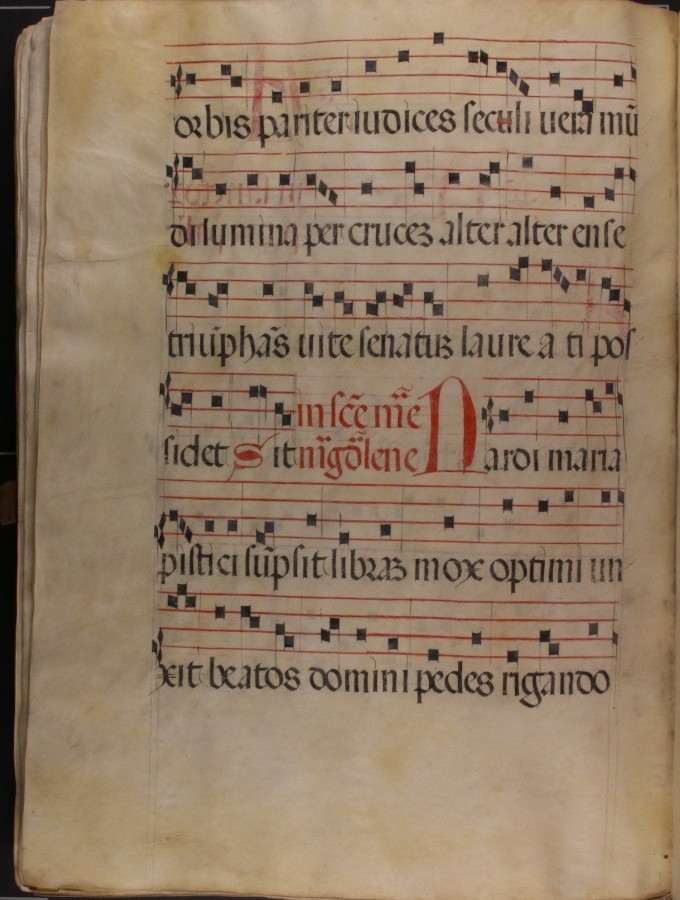 orbis pariter iudices seculi uera mū
di lumina per crucez alter alter ense
triūphās uite senatuz laure a ti pos
sidet Sit in scē mīe
mīgdlene Nardi maria
pistici sūpsit libraz mox optimi un
xit beatos domini pedes rigando